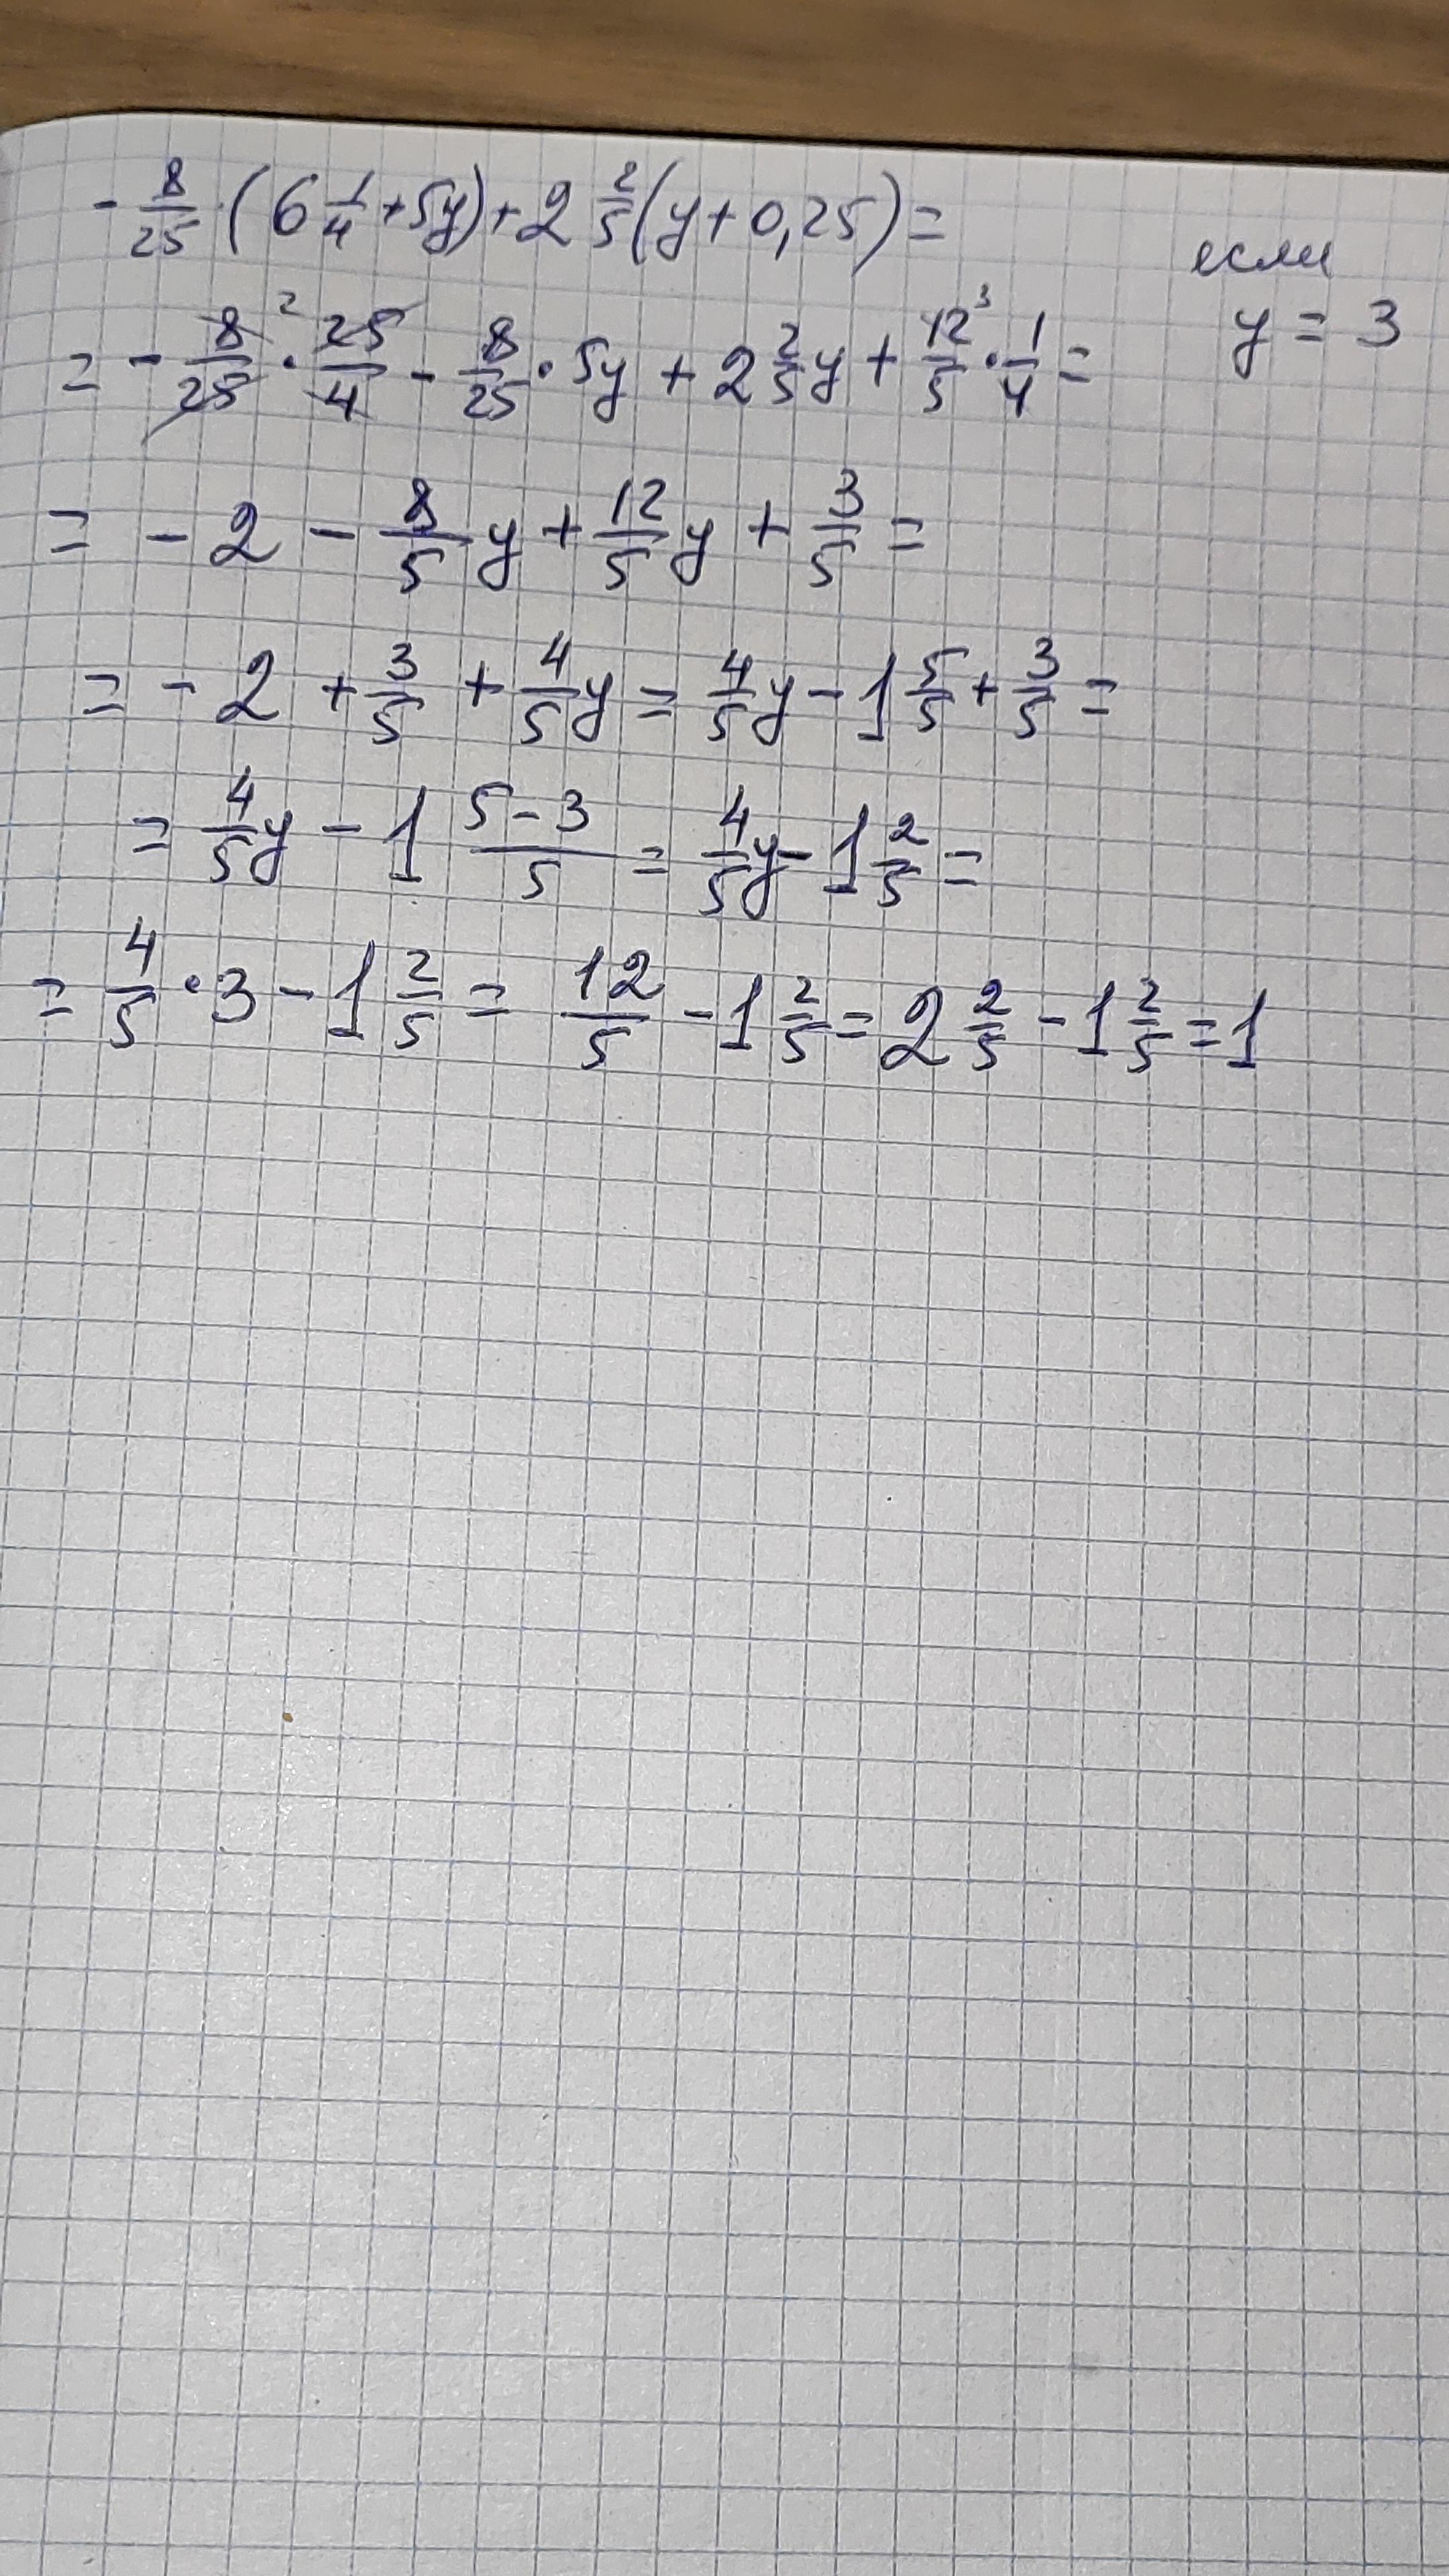 - 8/25 · (6 1/4 + 5y) + 2 2/5 (y + 0,25) =
если
y = 3
= - 8/25 · 2 25/4 - 8/25 · 5y + 2 2/5 y + 12/5 3 · 1/4 =
= - 2 - 8/5 y + 12/5 y + 3/5 =
= - 2 + 3/5 + 4/5 y = 4/5 y - 1 5/5 + 3/5 =
= 4/5 y - 1 5-3/5 = 4/5 y - 1 2/5 =
= 4/5 · 3 - 1 2/5 = 12/5 - 1 2/5 = 2 2/5 - 1 2/5 = 1